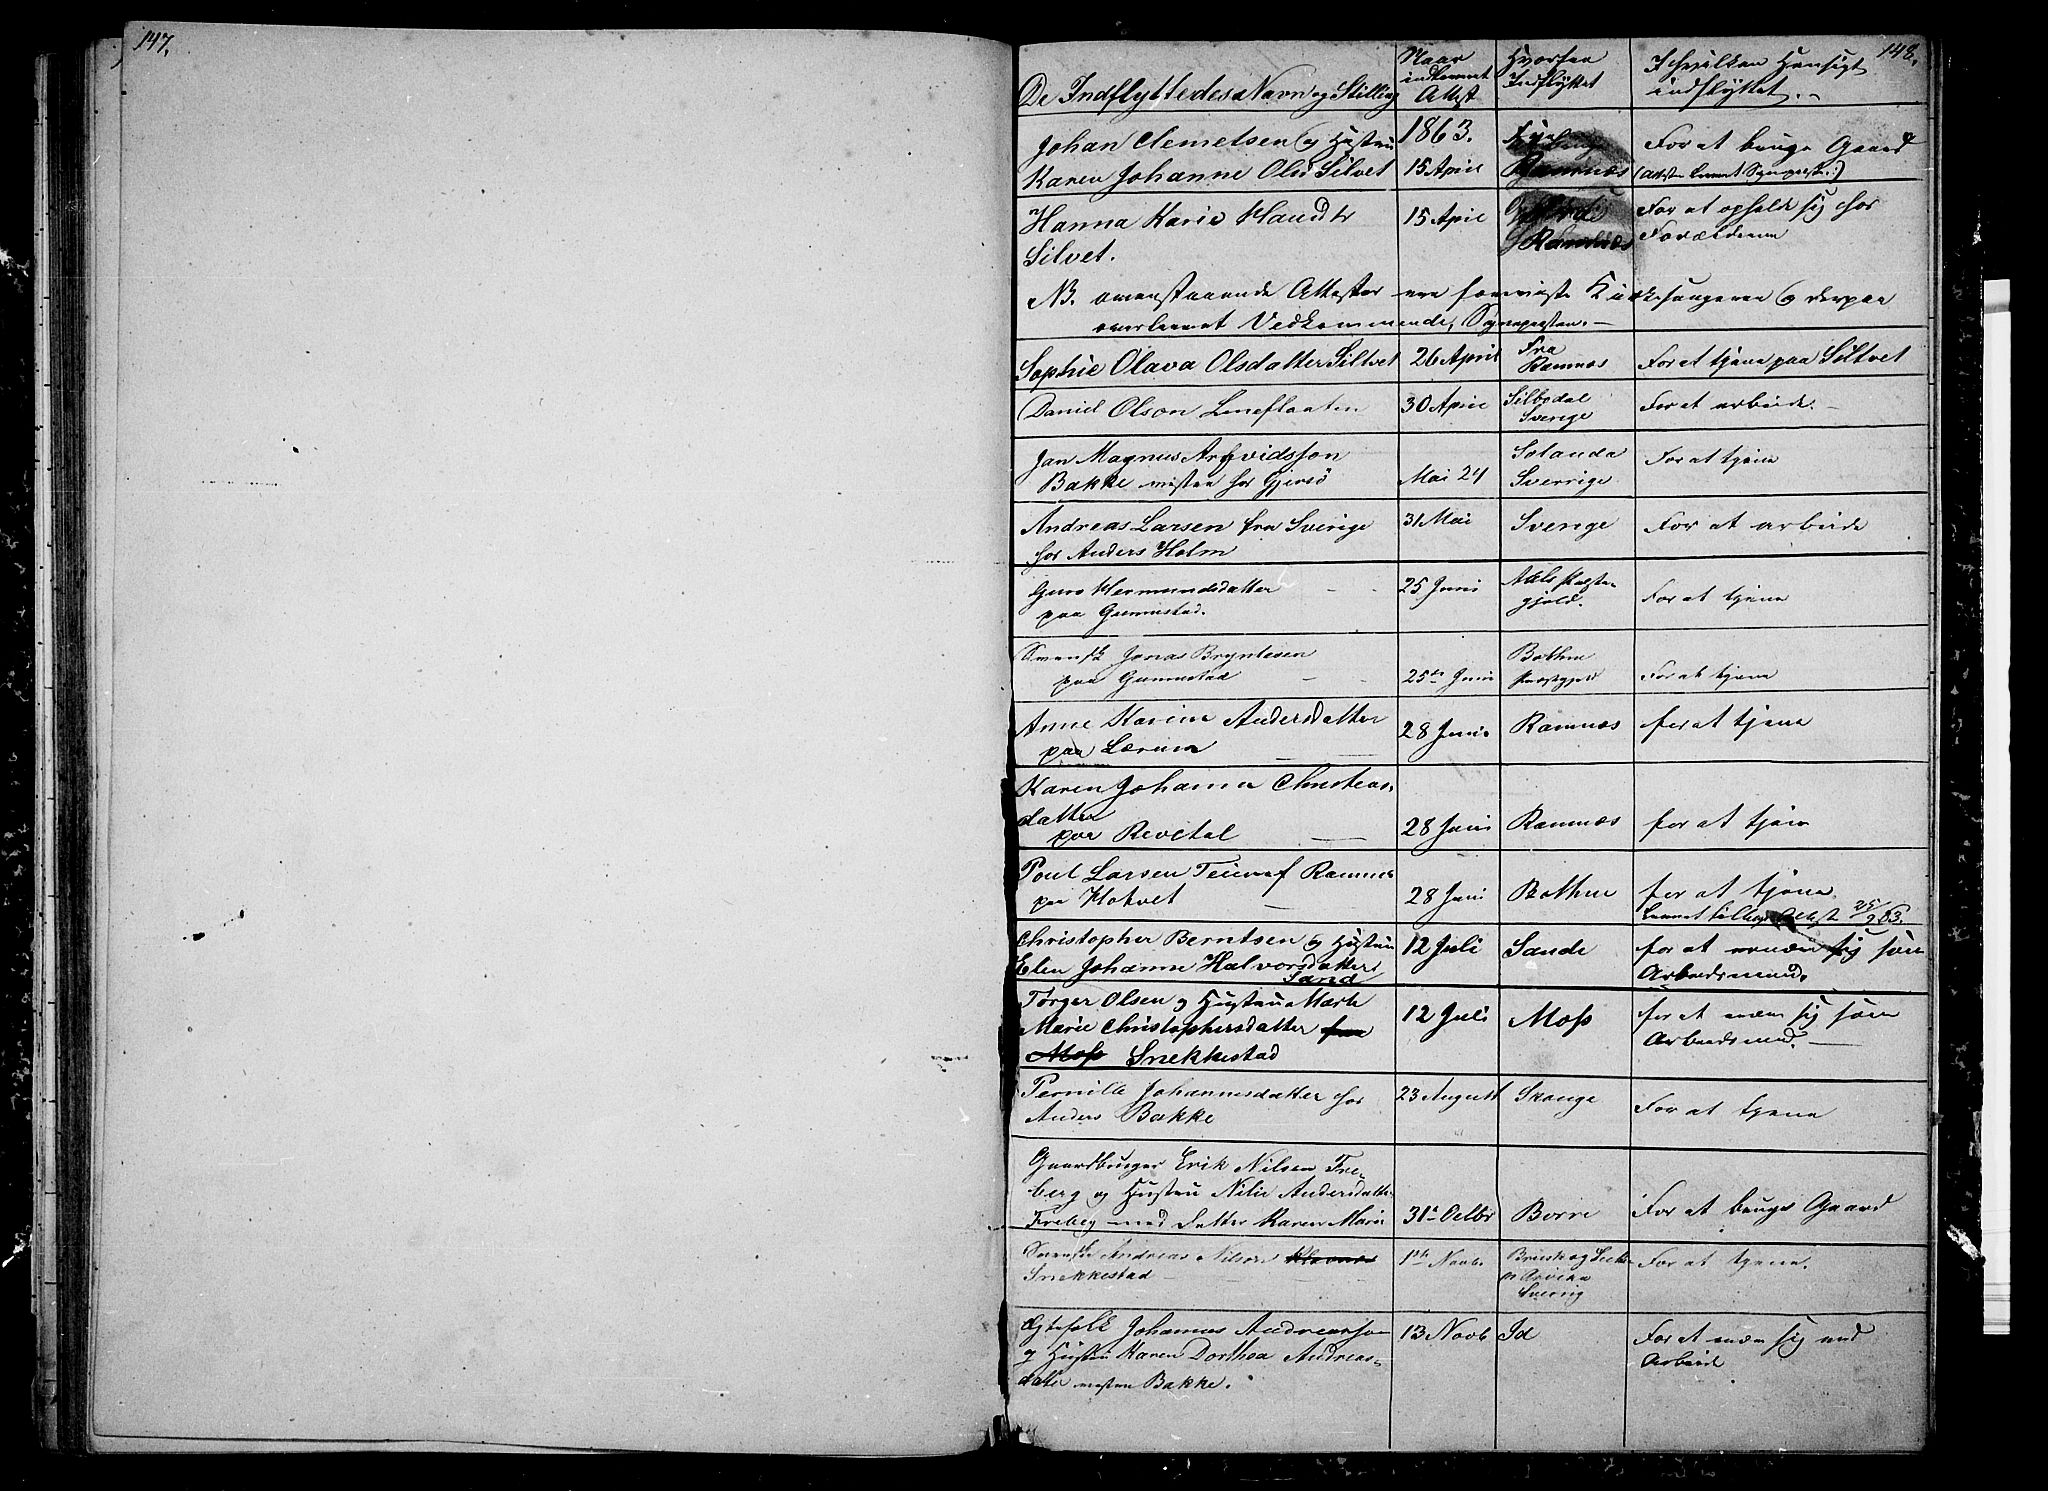 147.
148.
De Indflyttedes Navn og Stilling
Naar indleveret Attest
Hvorfra Indflyttet
I hvilken Hensigt indflyttet.
1863.
Johan Clemetsen og Hustru
Karen Johanne Olsd Silvet
15 April
Ramnæs
For at bruge Gaard
Hanna Karie
Silvet.
15 April
Ramnæs
For at opholde sig hos
Forældrene
NB. ovenstaaende Attester ere foreviste Kirkesangeren og derpaa
overleveret Vedkommende, Sognepresten.
Sophie Olava Olsdatter Siltvet
26 April
Fra
Ramnæs
For at tjene paa Siltvet
Daniel Olson
30 April
Silbodal
Sverige
For at arbeide.
Jan Magnus Arfvidsson
Bakke hos Gjersö
Mai 24
Solanda
Sverrige
For at tjene
Andreas Larsen fra Sverige
hos Anders Holm
31 Mai
Sverige
For at arbeide
Guro Hermundsdatter
paa Gunnestad.
25 Juni
Aals Præste-
gjeld.
For at tjene
Svensk Jonas Bryntesen
paa Gunnestad
25de Juni
Bothne
Præstgjeld
For at tjene
Anne Karine Andersdatter
paa Lærum
28 Juni
Ramnæs
for at tjene
Karen Johanne Christens-
datter
paa Revetal
28 Juni
Ramnæs
for at tjene
Poul Larsen Ramnæs
paa Hotvet
28 Juni
Bothne
for at tjene
Christopher Berntsen og Hustru
Elen Johanne Halvorsdatter
Sand
12 Juli
Sande
for at ernære sig som
Arbeidsmand.
Törger Olsen og Hustru Marte
Marie Christophersdatter fra
Moss Snekkestad
12 Juli
Moss
for at ernære sig som
Arbeidsmand.
Pernille Johannesdatter hos
Anders Bakke
23 August
Skouge
For at tjene
Gaardbruger Erik Nilsen Fre-
berg og Hustru Nilie Andersdatter
Freberg med Datter Karen Marie
31te Octbr
Borre
For at bruge Gaard
Svenske Andreas Nilsen
Snekkestad
1ste Novb.
Arvika
Sverrig
For at tjene.
Ægtefolk Johannes Andreassen
og Hustru Karen Dorthea Andreas-
datter Bakke.
13 Novb
Id
For at ernære sig ved
Arbeide